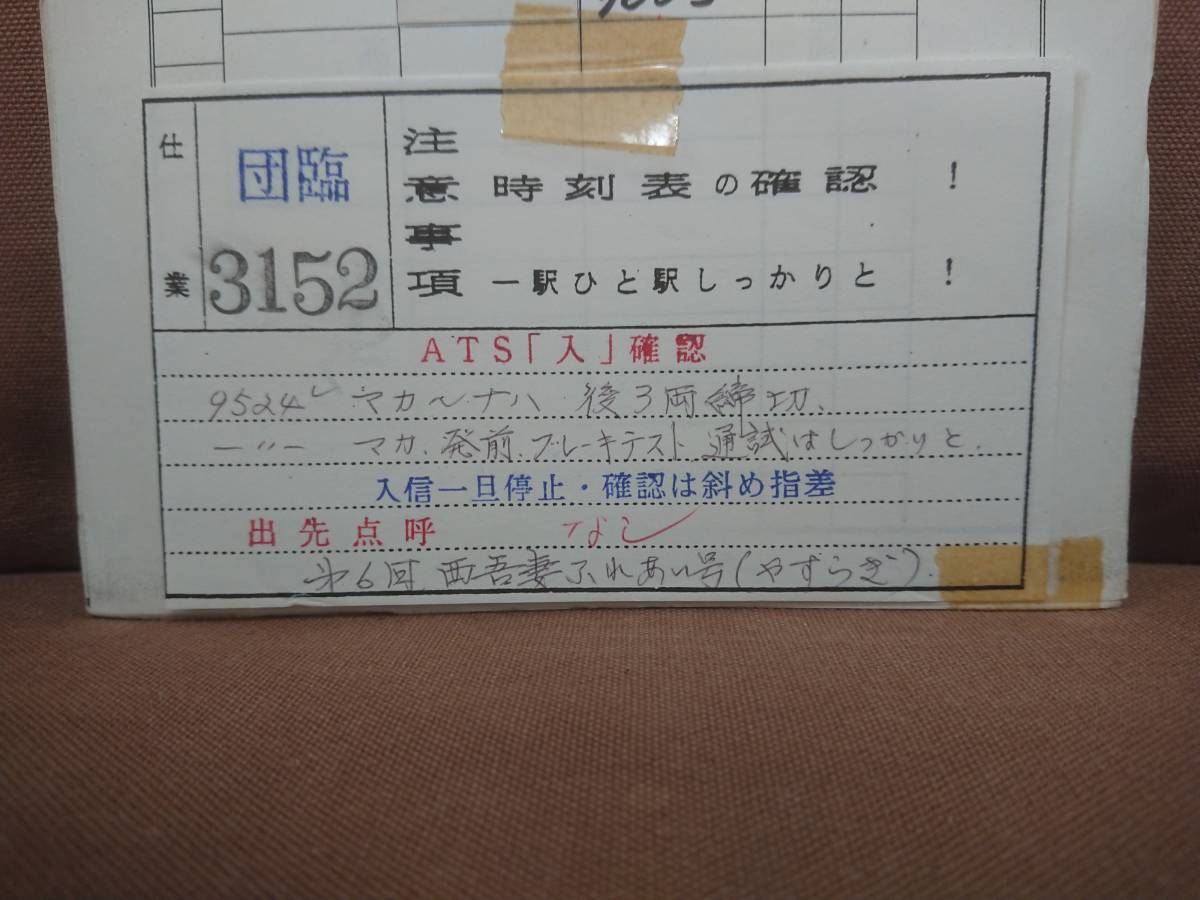 仕業 団臨 3152
注意事項
時刻表の確認 !
一駅ひと駅しっかりと !
ATS「入」確認
9524レ マカ〜ナハ 後3両締切、
〃 マカ、発前、ブレーキテスト通試はしっかりと、
入信一旦停止・確認は斜め指差
出先点呼 なし
第6回 西吾妻ふれあい号(やすらぎ)